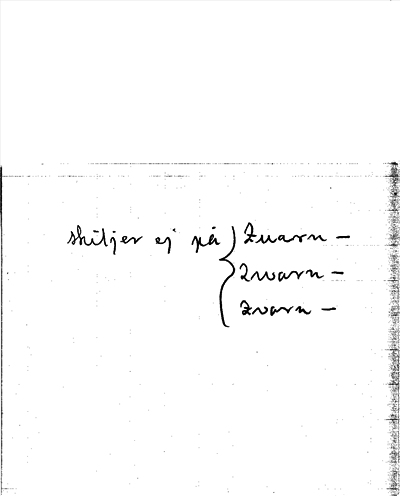 skiljer ej på { Zuarn —
Zwarn —
Zvarn —